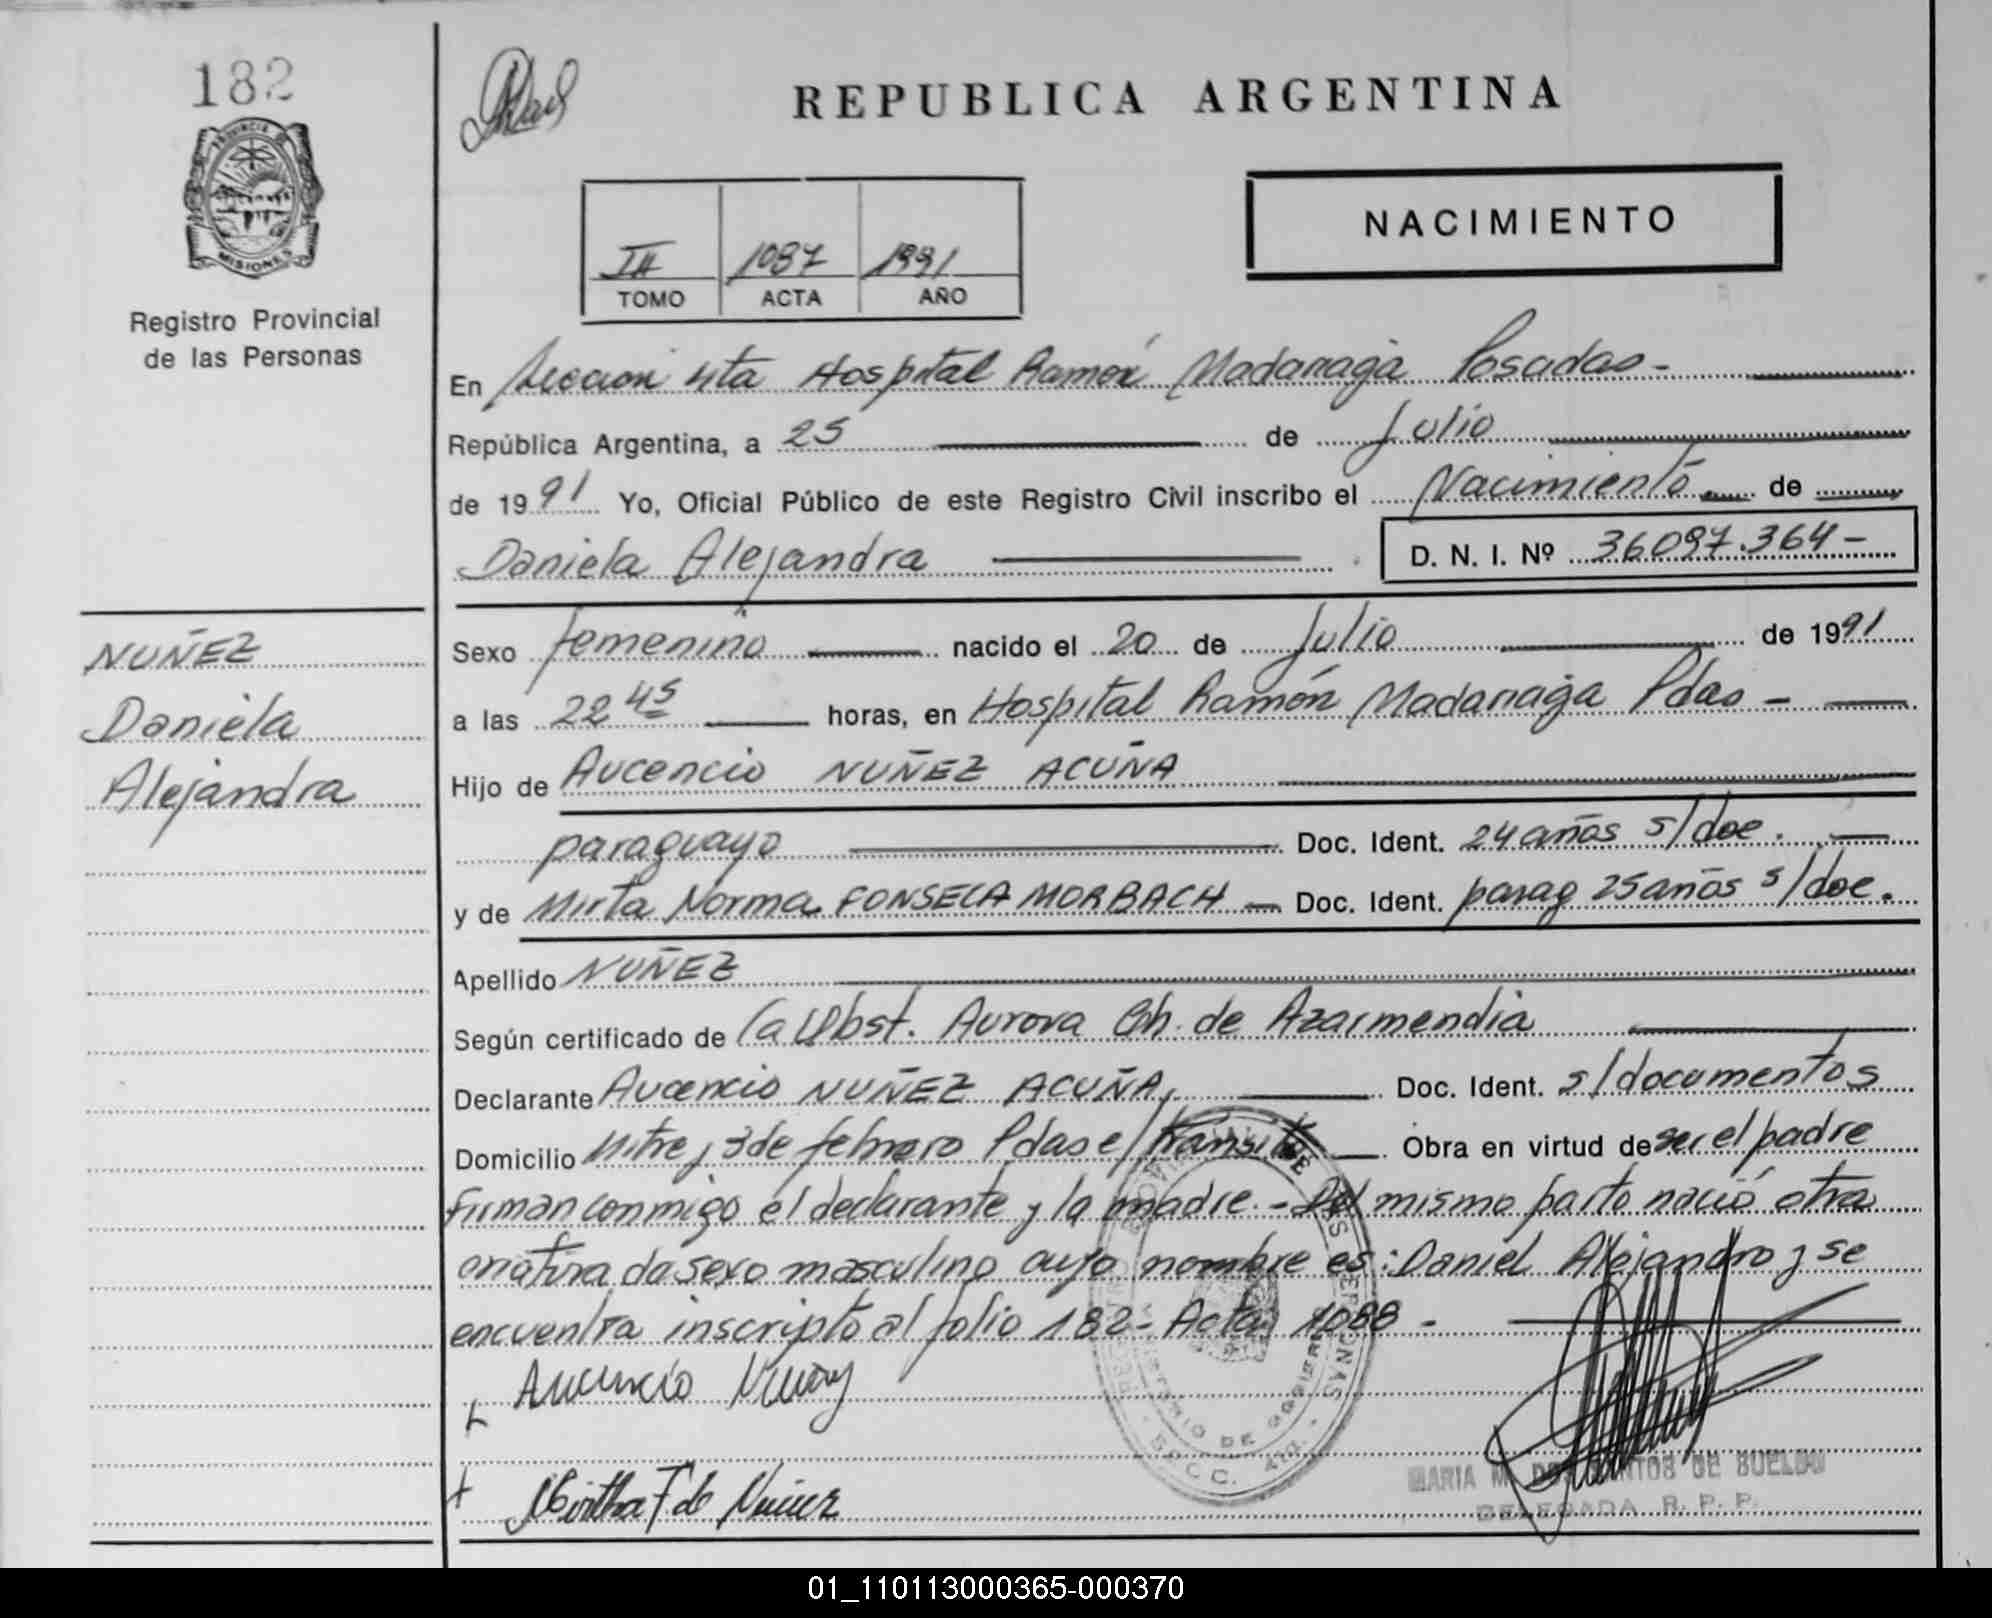 182
PROVINCIA DE
MISIONES
Registro Provincial
de las Personas
NUÑEZ
Daniela
Alejandra
REPUBLICA ARGENTINA
NACIMIENTO
III 1087 1991
TOMO ACTA AÑO
En Seccion 4ta Hospital Ramón Madariaga Posadas -
República Argentina, a 25 de Julio
de 1991 Yo, Oficial Público de este Registro Civil inscribo el Nacimiento de
Daniela Alejandra D. N. I. Nº 36097.364 -
Sexo femenino nacido el 20 de Julio de 1991
a las 22 45 horas, en Hospital Ramón Madariaga Pdas -
Hijo de Aucencio NUÑEZ ACUÑA
paraguayo Doc. Ident. 24 años s/doc.
y de Mirta Norma FONSECA MORBACH - Doc. Ident. parag 25 años s/doc.
Apellido NUÑEZ
Según certificado de la Obst. Aurora Ch. de Azarmendia
Declarante Aucencio NUÑEZ ACUÑA, Doc. Ident. s/documentos
Domicilio Mitre y 3 de febrero Pdas e/transito Obra en virtud de ser el padre
firman conmigo el declarante y la madre. - Del mismo parto nació otra
criatura de sexo masculino cuyo nombre es: Daniel Alejandro y se
encuentra inscripto al folio 182 - Acta 1088 -
Aucencio Nuñez
Mirtha F de Nuñez
MARIA M. DOS SANTOS DE SUELDO
DELEGADA R. P. P.
01_110113000365-000370